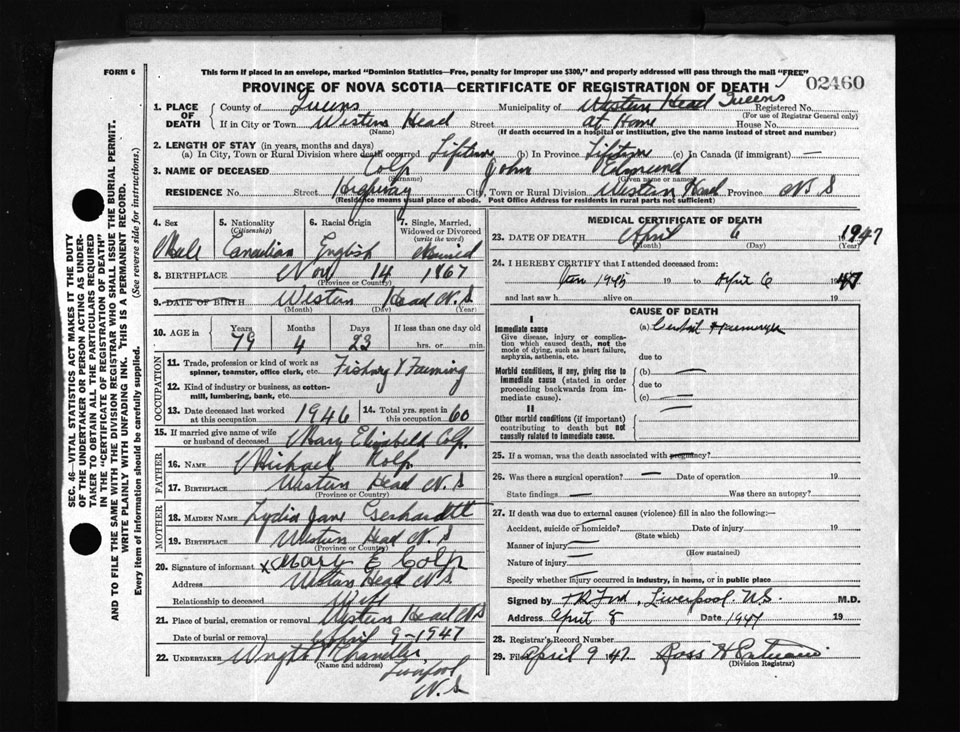 FORM 6
This form if placed in an envelope, marked "Dominion Statistics—Free, penalty for improper use $300," and properly addressed will pass through the mail "FREE"
PROVINCE OF NOVA SCOTIA—CERTIFICATE OF REGISTRATION OF DEATH
02460
1. PLACE OF DEATH
County of Queens Municipality of Western Head Queens Registered No.
(For use of Registrar General only)
If in City or Town Western Head Street At Home House No.
(Name) (If death occurred in a hospital or institution, give the name instead of street and number)
2. LENGTH OF STAY (in years, months and days)
(a) In City, Town or Rural Division where death occurred Lifetime (b) In Province Lifetime (c) In Canada (if immigrant) —
3. NAME OF DECEASED Colp John Edmund
(Surname) (Given name or names)
RESIDENCE No. Street Highway City, Town or Rural Division Western Head Province N.S
(Residence means usual place of abode. Post Office Address for residents in rural parts not sufficient)
4. Sex
Male
5. Nationality
(Citizenship)
Canadian
6. Racial Origin
English
7. Single, Married, Widowed or Divorced
(write the word)
Married
8. BIRTHPLACE Nov 14 1867
(Province or Country)
9. DATE OF BIRTH Western Head N.S.
(Month) (Day) (Year)
10. AGE in
Years Months Days If less than one day old
79 4 23 hrs. or min.
OCCUPATION
11. Trade, profession or kind of work as spinner, teamster, office clerk, etc. Fishing & Farming
12. Kind of industry or business, as cotton-mill, lumbering, bank, etc.
13. Date deceased last worked at this occupation 1946
14. Total yrs. spent in this occupation 60
15. If married give name of wife or husband of deceased Mary Elizabeth Colp.
FATHER
16. NAME Michael Kolp
17. BIRTHPLACE Western Head N.S
(Province or Country)
MOTHER
18. MAIDEN NAME Lydia Jane Gerhardtt
19. BIRTHPLACE Western Head N.S
(Province or Country)
20. Signature of informant x Mary E Colp
Address Western Head N.S.
Relationship to deceased Wife
21. Place of burial, cremation or removal Western Head N.S
Date of burial or removal April 9-1947
22. UNDERTAKER Wright Chandler,
(Name and address) Liverpool
N.S
MEDICAL CERTIFICATE OF DEATH
23. DATE OF DEATH April 6 1947
(Month) (Day) (Year)
24. I HEREBY CERTIFY that I attended deceased from:
Jan 1945 19 to April 6 1947
and last saw h alive on 19
CAUSE OF DEATH
I
Immediate cause
Give disease, injury or complication which caused death, not the mode of dying, such as heart failure, asphyxia, asthenia, etc.
(a)
due to
Morbid conditions, if any, giving rise to immediate cause (stated in order proceeding backwards from immediate cause).
(b) —
due to
(c) —
II
Other morbid conditions (if important) contributing to death but not causally related to immediate cause.
25. If a woman, was the death associated with pregnancy?
26. Was there a surgical operation? — Date of operation 19
State findings — Was there an autopsy?
27. If death was due to external causes (violence) fill in also the following:—
Accident, suicide or homicide? Date of injury 19
(State which)
Manner of injury
(How sustained)
Nature of injury
Specify whether injury occurred in industry, in home, or in public place
Signed by Liverpool N.S. M.D.
Address April 8 Date 1947 19
28. Registrar's Record Number
29. Filed April 9 1947 Ross H
(Division Registrar)
SEC. 46—VITAL STATISTICS ACT MAKES IT THE DUTY OF THE UNDERTAKER OR PERSON ACTING AS UNDERTAKER TO OBTAIN ALL THE PARTICULARS REQUIRED IN THE "CERTIFICATE OF REGISTRATION OF DEATH" AND TO FILE THE SAME WITH THE DIVISION REGISTRAR WHO SHALL ISSUE THE BURIAL PERMIT.
WRITE PLAINLY WITH UNFADING INK. THIS IS A PERMANENT RECORD.
Every item of information should be carefully supplied. (See reverse side for instructions.)